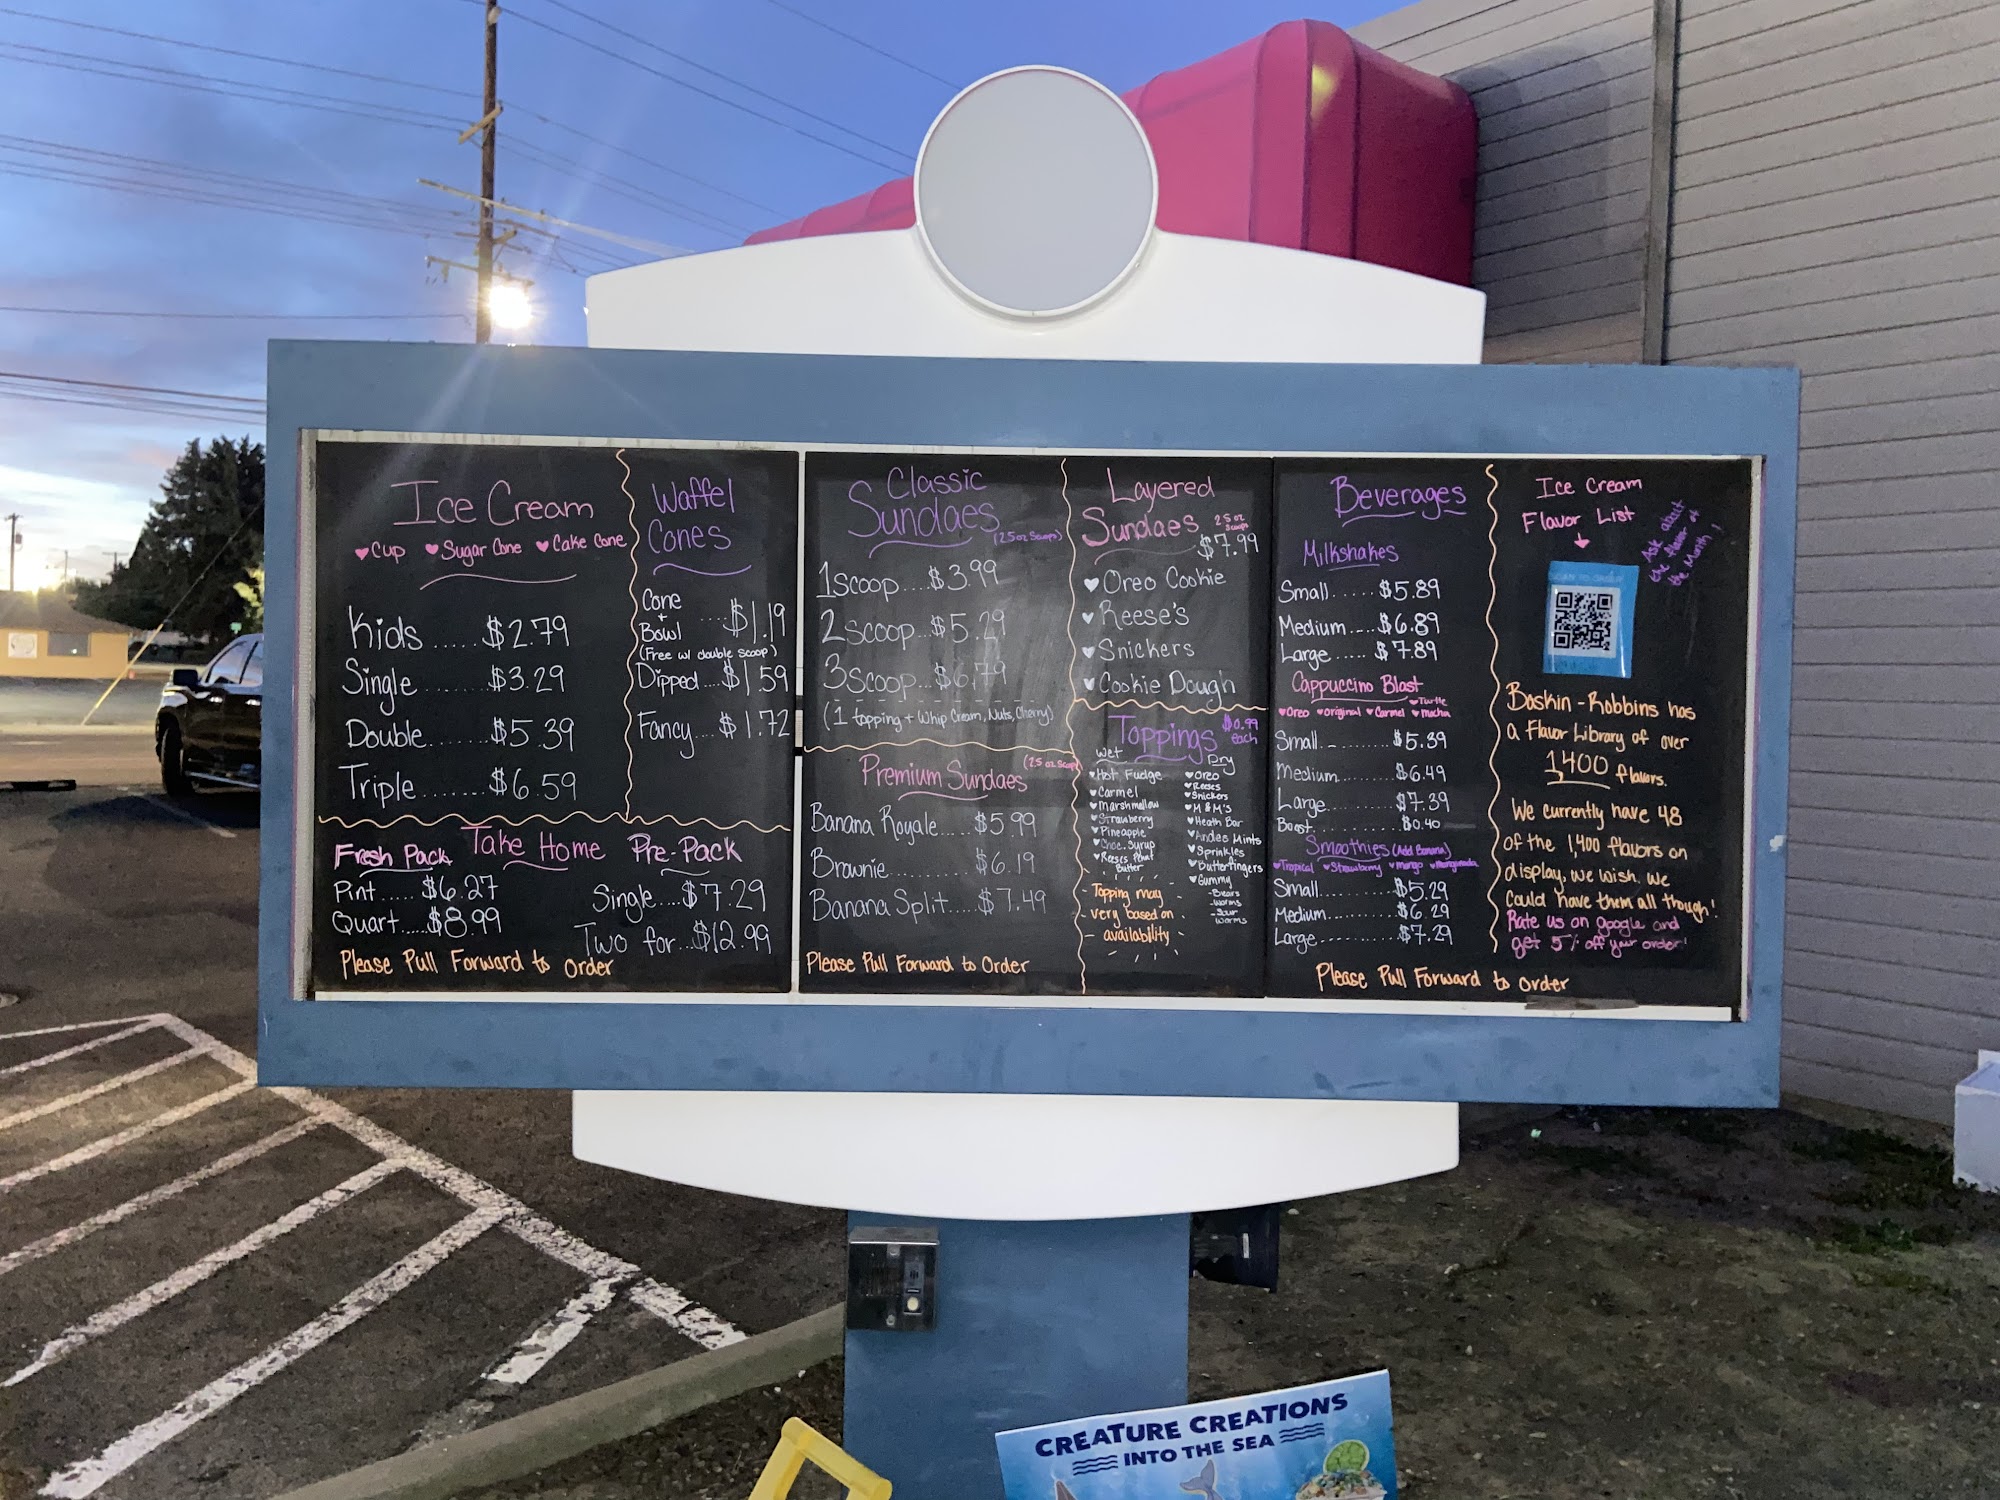 Ice Cream
♥Cup ♥Sugar Cone ♥Cake Cone
Kids.....$2.79
Single........$3.29
Double.......$5.39
Triple.......$6.59
Waffel
Cones
Cone
+
Bowl ....$1.19
(Free w/ double scoop)
Dipped...$1.59
Fancy...$1.72
Take Home
Fresh Pack
Pint.....$6.27
Quart.....$8.99
Pre-Pack
Single....$7.29
Two for...$12.99
Please Pull Forward to Order
Classic
Sundaes
(2.5oz Scoops)
1scoop....$3.99
2scoop..$5.29
3scoop...$6.79
(1 topping + Whip Cream, Nuts, Cherry)
Premium Sundaes
(2.5 oz Scoop
Banana Royale.....$5.99
Brownie............$6.19
Banana Split.....$7.49
Please Pull Forward to Order
Layered
Sundaes
2.5 oz
Scoops
$7.99
♥ Oreo Cookie
♥ Reese's
♥ Snickers
♥ Cookie Dough
Toppings
$0.99
each
Wet
♥Hot Fudge
♥Carmel
♥Marshmallow
♥Strawberry
♥Pineapple
♥Choc. Syrup
♥Reeses Penut
Butter
Dry
♥Oreo
♥Reeses
♥Snickers
♥M&M's
♥Heath Bar
♥Andes Mints
♥Sprinkles
♥Butterfingers
♥Gummy
-Bears
-Worms
-Sour
Worms
Topping may
very based on
availability
Beverages
Milkshakes
Small......$5.89
Medium.....$6.89
Large.....$7.89
Cappuccino Blast
♥Turtle
♥Oreo ♥original ♥Carmel ♥mocha
Small...........$5.39
Medium.........$6.49
Large..........$7.39
Boost...........$0.40
Smoothies (Add Banana)
♥Tropical ♥Strawberry ♥mango ♥Mangonada
Small...........$5.29
Medium..........$6.29
Large...........$7.29
Please Pull Forward to Order
Ice Cream
Flavor List
Ask about
the flavor of
the Month!
SCAN TO ORDER
Baskin-Robbins has
a Flavor Library of over
1400 flavors.
We currently have 48
of the 1,400 flavors on
display, we wish we
could have them all though!
Rate us on google and
get 5% off your order!
CREATURE CREATIONS
INTO THE SEA